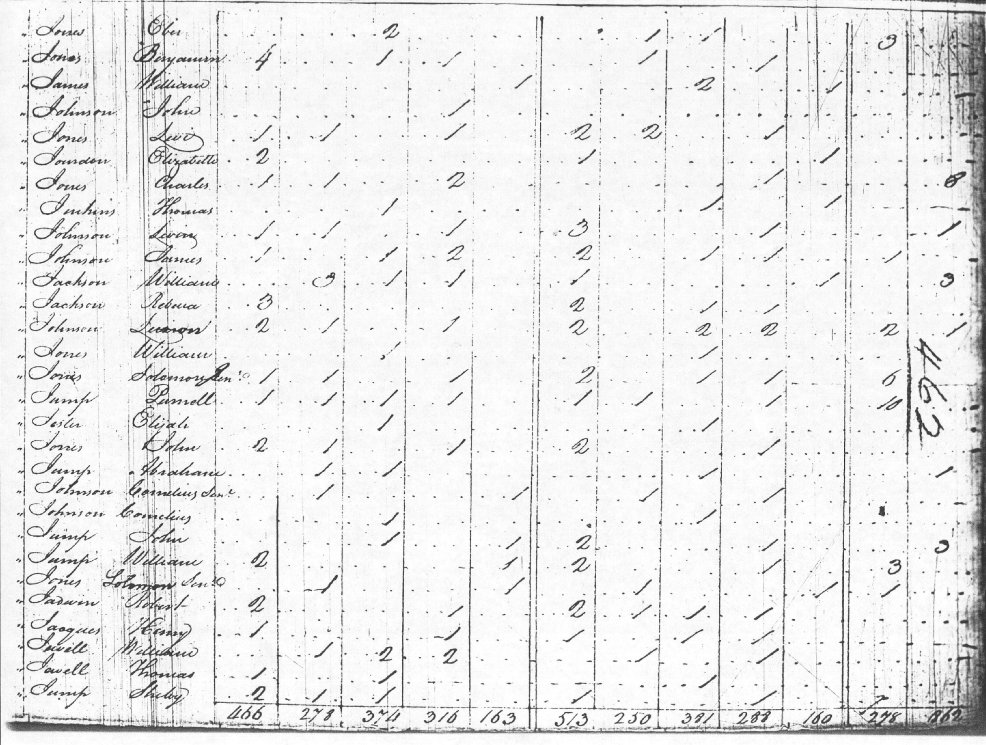 " Jones Eber . . 2 . . . 1 1 . . 3 .
" Jones Benjamin 4 . 1 1 . . 1 . 1 . . .
" James William . . . . 1 . . 2 . 1 . 1
" Johnson John . . . 1 . . . . . . . .
" Jones Levi 1 1 . 1 . 2 2 . 1 . . .
" Jourdon Elizabeth 2 . . . . 1 . . . 1 . .
" Jones Charles 1 1 . 2 . . . . 1 . . 8
" Jenkins Thomas . . 1 . . . . 1 . 1 . .
" Johnson Leven 1 1 . 1 . 3 . . 1 . . 1
" Johnson James 1 . 1 2 . 2 . 1 1 . 1 .
" Jackson William . 3 1 1 . 1 . . . 1 . 3
" Jackson 3 . . . . 2 . 1 1 . . .
" Johnson 2 1 . 1 . 2 . 2 2 . 2 1
" Jones William . . 1 . . . . 1 . . . .
" Jones Solomon Jun 1 1 1 1 . 2 . 1 1 . 6 .
" Jump Purnell 1 1 1 1 . 1 1 . 1 . 10 .
" Jester Elijah . . 1 . . . . 1 . . . .
" Jones John 2 1 . 1 . 2 . . 1 . . .
" Jump Abraham . 1 1 . . . . 1 . . . 1
" Johnson Cornelius Sen . 1 . . 1 . 1 . 1 . . .
" Johnson Cornelius . . 1 . . . . 1 . . . .
" Jump John . . 1 . 1 2 . . 1 . . 3
" Jump William 2 . . . 1 2 . . 1 . 3 .
" Jones Solomon Sen . 1 . . 1 . 1 . . 1 1 .
" Jadwin Robert 2 . . 1 . 2 1 1 1 . . .
" Jacques Henry 1 . . 1 . 1 . 1 1 . . .
" Jewell William . 1 2 2 . . 1 . 1 . . .
" Jewell Thomas 1 . 1 . . . . 1 . . . .
" Jump 2 1 1 . . 1 . 1 1 . 1 .
466 278 374 316 163 513 250 381 288 160 278 862
462